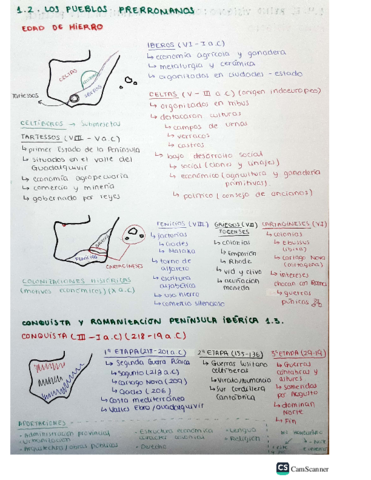 1.2. LOS PUEBLOS PRERROMANOS
EDAD DE HIERRO
IBEROS (VI - I a.C)
↳ economía agrícola y ganadera
↳ metalurgia y cerámica
↳ organizados en ciudades - estado
CELTAS
IBEROS
Tartessos
CELTAS (V - III a.C) (origen indoeuropeo)
↳ organizados en tribus
↳ destacaron culturas
↳ campos de urnas
↳ verracos
↳ castros
↳ bajo desarrollo social
↳ social (clanes y linajes)
↳ económico (agricultura y ganadería
primitivas)
↳ político (consejo de ancianos)
CELTÍBEROS →
TARTESSOS (VIII - V a.C)
↳ primer Estado de la Península
↳ situados en el valle del
Guadalquivir
↳ economía agropecuaria
↳ comercio y minería
↳ gobernado por reyes
FENICIOS (VIII)
↳ factorías
↳ Gades
↳ Malaka
↳ torno de
alfarero
↳ escritura
alfabética
↳ uso hierro
↳ comercio
GRIEGOS (VII)
↳ colonias
↳ Emporion
↳ Rhode
↳ vid y olivo
↳ acuñación
moneda
CARTAGINESES (VI)
↳ colonias
↳ Ebussus
(Ibiza)
↳ Cartago Nova
(Cartagena)
↳ intereses
chocan con Roma
↳ guerras
púnicas
COLONIZACIONES HISTÓRICAS
(motivos económicos) (X a.C)
CONQUISTA Y ROMANIZACIÓN PENÍNSULA IBÉRICA 1.3.
CONQUISTA (III - I a.C) (218 - 19 a.C)
1º ETAPA (218-201 a.C)
↳ Segunda Guerra Púnica
↳ Sagunto (218 a.C)
↳ Cartago Nova (209)
↳ Gades (206)
↳ Costa mediterránea
↳ Valles Ebro / Guadalquivir
2º ETAPA (155-136)
↳ Guerras lusitanas
celtíberas
↳ Viriato / Numancia
↳ Sur Cordillera
Cantábrica
3º ETAPA (29-19)
↳ Guerras
(cántabras
y astures)
↳ sometidas
por Augusto
↳ dominan
Norte
↳ Fin
APORTACIONES
- Administración provincial
- Estructura económica
- Derecho
- Lengua
- Religión
CS CamScanner